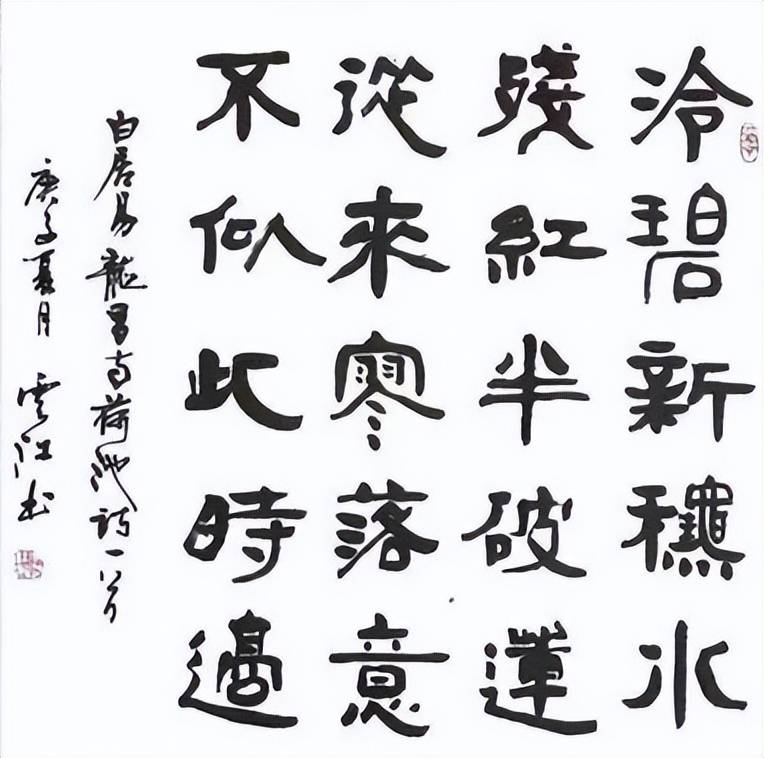 泠碧新龝水
殘紅半破蓮
從來寥落意
不似此時過
白居易龍昌寺荷池詩一首
庚子夏月 雲江书